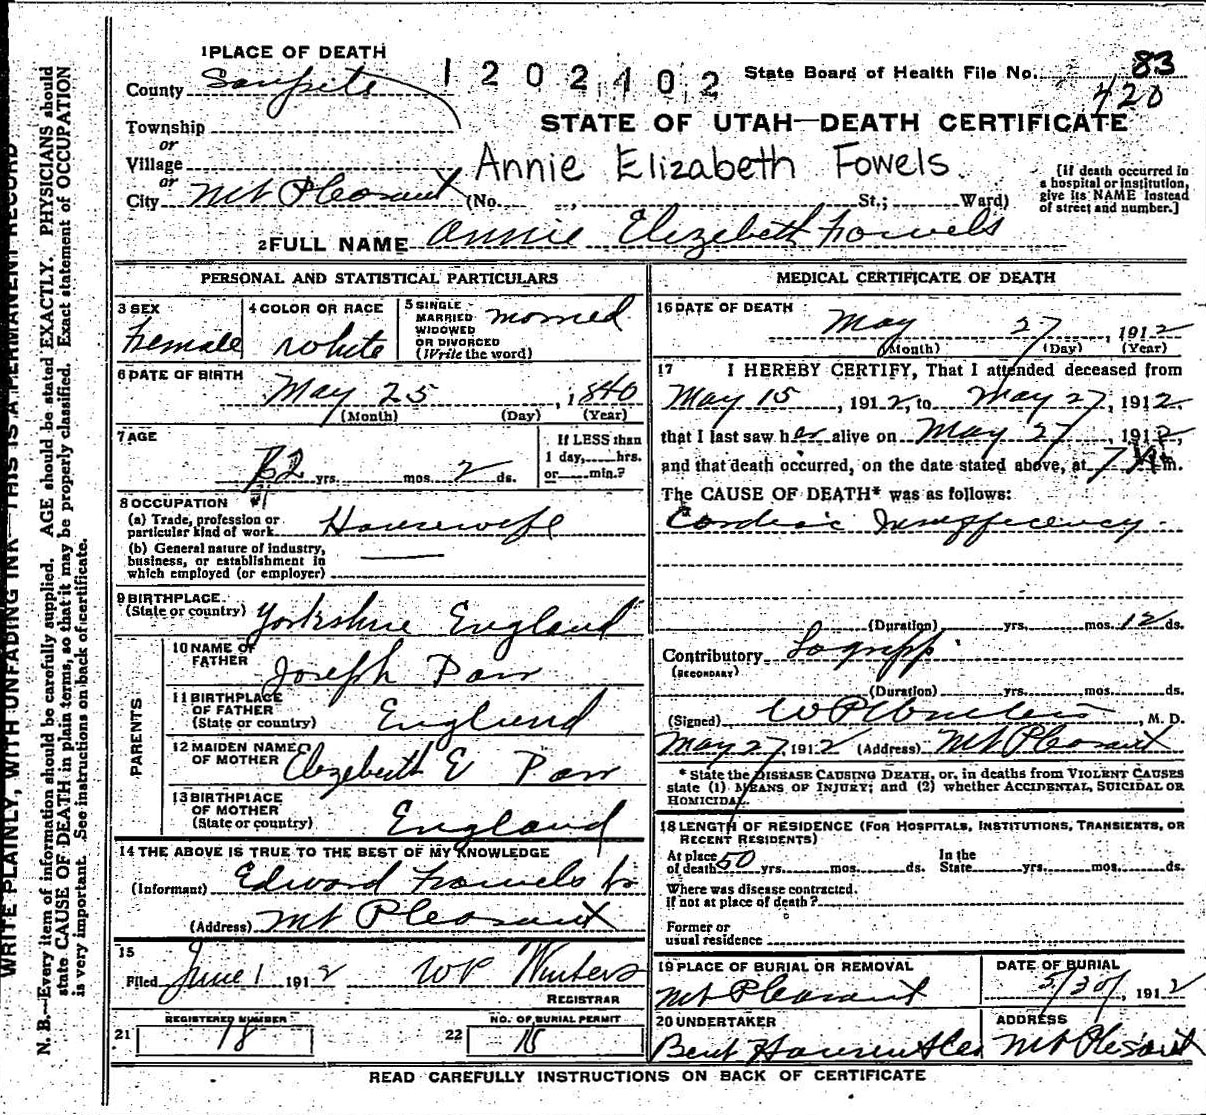 WRITE PLAINLY, WITH UNFADING INK—THIS IS A PERMANENT RECORD
N. B.—Every item of information should be carefully supplied. AGE should be stated EXACTLY. PHYSICIANS should
state CAUSE OF DEATH in plain terms, so that it may be properly classified. Exact statement of OCCUPATION
is very important. See instructions on back of certificate.
1 PLACE OF DEATH
County Sanpete
1202402
State Board of Health File No. 83
420
Township
or
Village
or
City Mt Pleasant (No. St.; Ward)
STATE OF UTAH—DEATH CERTIFICATE
Annie Elizabeth Fowels
[If death occurred in
a hospital or institution,
give its NAME instead
of street and number.]
2 FULL NAME Annie Elizebeth Fowels
PERSONAL AND STATISTICAL PARTICULARS
3 SEX
Female
4 COLOR OR RACE
White
5 SINGLE
MARRIED
WIDOWED
OR DIVORCED
(Write the word)
married
6 DATE OF BIRTH
May 25, 1840
(Month) (Day) (Year)
7 AGE
yrs. mos. 2 ds.
If LESS than
1 day, hrs.
or min.?
8 OCCUPATION
(a) Trade, profession or
particular kind of work Housewife
(b) General nature of industry,
business, or establishment in
which employed (or employer)
9 BIRTHPLACE
(State or country) Yorkshire England
PARENTS
10 NAME OF
FATHER Joseph Parr
11 BIRTHPLACE
OF FATHER
(State or country) England
12 MAIDEN NAME
OF MOTHER Elizebeth E Parr
13 BIRTHPLACE
OF MOTHER
(State or country) England
14 THE ABOVE IS TRUE TO THE BEST OF MY KNOWLEDGE
(Informant) Edward Fowels Jr
(Address) Mt Pleasant
15
Filed June 1 1912 WP Winters
REGISTRAR
21 REGISTERED NUMBER 18
22 NO. OF BURIAL PERMIT 18
MEDICAL CERTIFICATE OF DEATH
16 DATE OF DEATH
May 27, 1912
(Month) (Day) (Year)
17 I HEREBY CERTIFY, That I attended deceased from
May 15, 1912, to May 27, 1912,
that I last saw her alive on May 27, 1912,
and that death occurred, on the date stated above, at 7 m.
The CAUSE OF DEATH* was as follows:
Cardiac Insufficency
(Duration) yrs. mos. 12 ds.
Contributory Lagripp
(SECONDARY)
(Duration) yrs. mos. ds.
(Signed) WP Winters, M. D.
May 27, 1912 (Address) Mt Pleasant
* State the DISEASE CAUSING DEATH, or, in deaths from VIOLENT CAUSES
state (1) MEANS OF INJURY; and (2) whether ACCIDENTAL, SUICIDAL OR
HOMICIDAL.
18 LENGTH OF RESIDENCE (FOR HOSPITALS, INSTITUTIONS, TRANSIENTS, OR
RECENT RESIDENTS)
At place
of death 50 yrs. mos. ds.
In the
State yrs. mos. ds.
Where was disease contracted.
if not at place of death?
Former or
usual residence
19 PLACE OF BURIAL OR REMOVAL
Mt Pleasant
DATE OF BURIAL
5/30/, 1912
20 UNDERTAKER
Bent Hansen
ADDRESS
Mt Plesant
READ CAREFULLY INSTRUCTIONS ON BACK OF CERTIFICATE